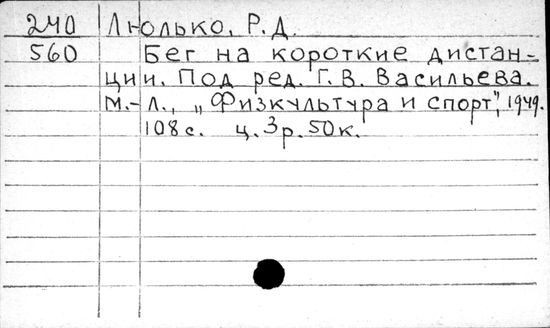 240 Люлько, Р.Д.
560 Бег на короткие дистан-
ции. Под ред. Г.В. Васильева.
М.-Л., „Физкультура и спорт", 1949.
108 с. ц. 3 р. 50 к.